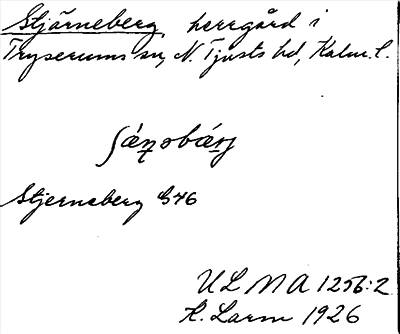 Stjärneberg, herrgård i
Tryserums sn, N. Tjusts hd, Kalm. l.
Stjerneberg G46
ULMA 1256:2
K. Larm 1926